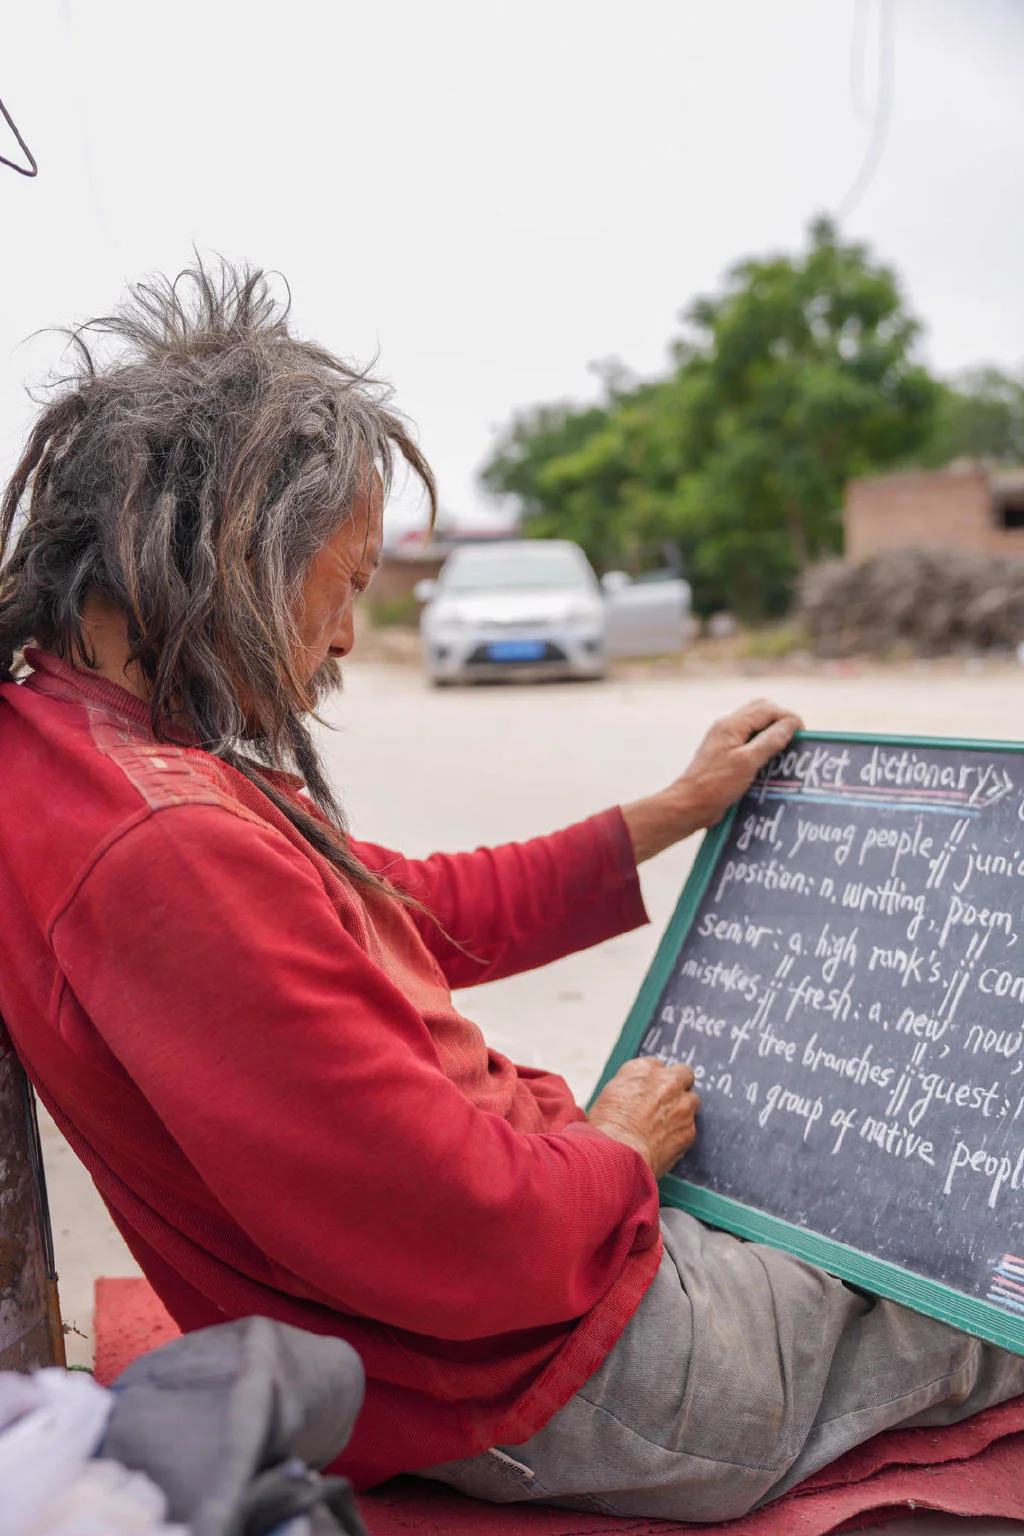 pocket dictionary》
girl, young people,// juni
position: n. writting, poem,
senior: a. high rank's,// con
mistakes,// fresh: a. new, now,
a piece of tree branches,// guest:
: n. a group of native people